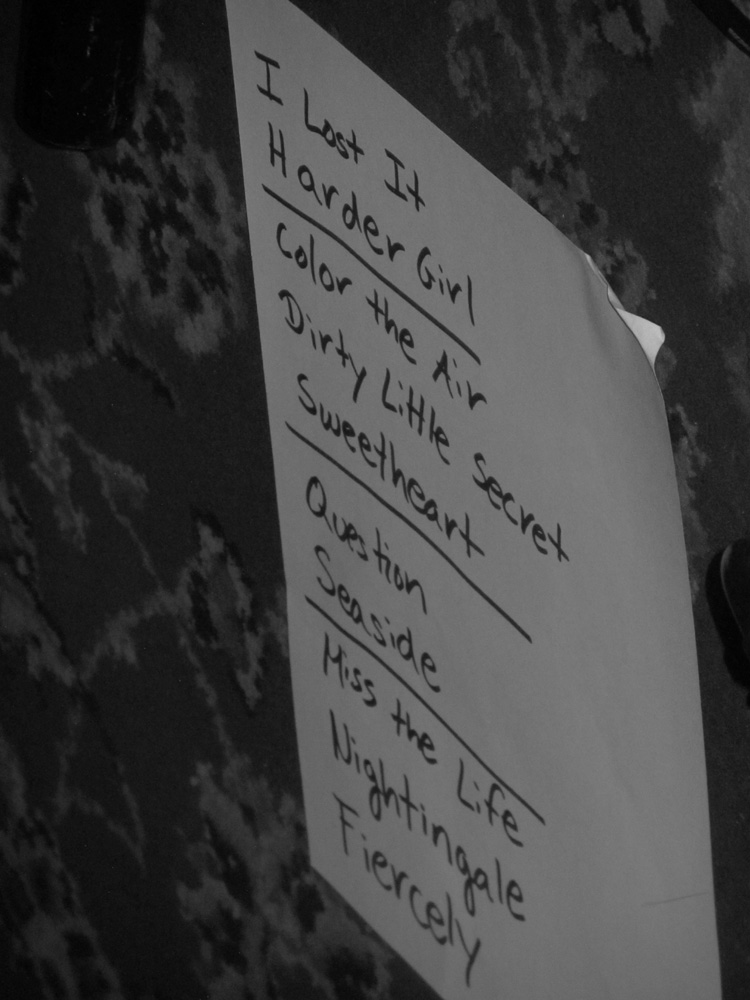 I Lost It
Harder Girl
Color the Air
Dirty Little Secret
Sweetheart
Question
Seaside
Miss the Life
Nightingale
Fiercely